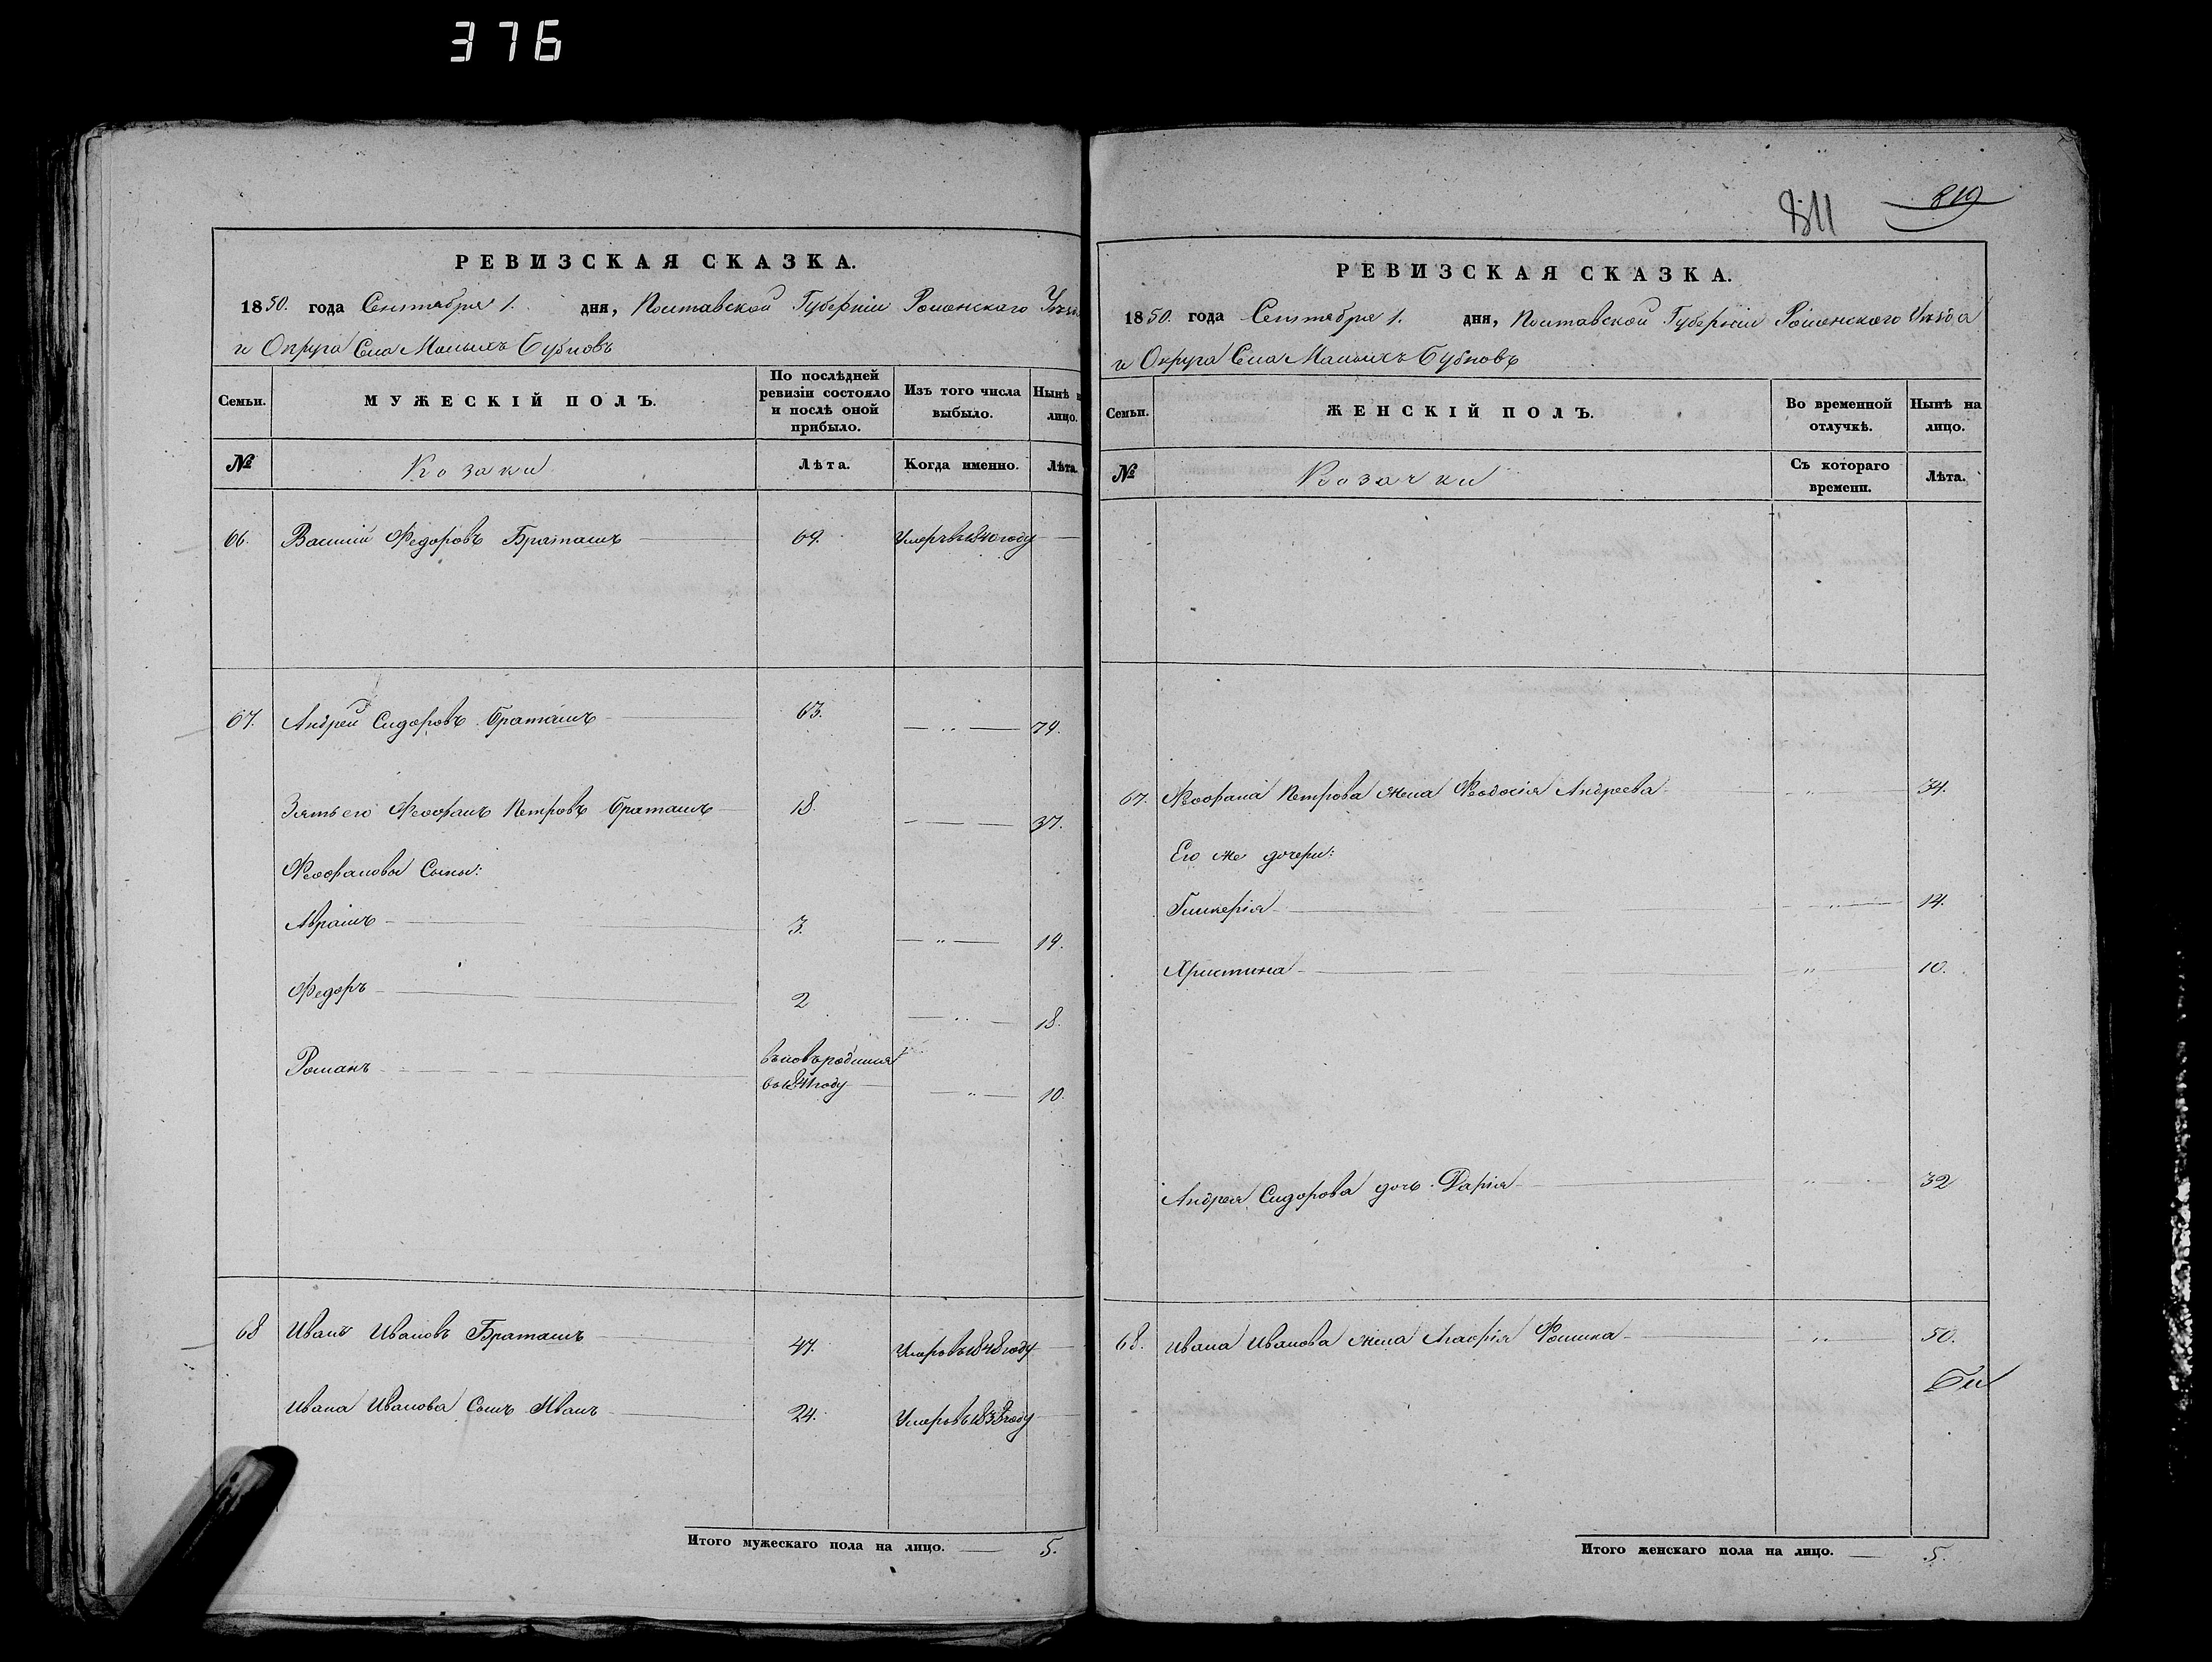 376
РЕВИЗСКАЯ СКАЗКА.
1850. года Сентября 1. дня, Полтавской Губерніи Роменскаго Уѣзда
и Округа Села Малыхъ Бубновъ
Семьи.
МУЖЕСКІЙ ПОЛЪ.
По послѣдней ревизіи состояло и послѣ оной прибыло.
Изъ того числа выбыло.
Нынѣ н лицо.
№
Козаки
Лѣта.
Когда именно.
Лѣта.
66. Василій Федоровъ Браташъ 69. Умеръ въ 1840 году
67. Андрей Сидоровъ Браташъ 63. — „ — 74.
Зять его Феофанъ Петровъ Браташъ 18. 37.
Феофановы Сыны:
3. — „ — 14.
Федоръ 2 — „ — 18.
Романъ вновь родился
въ 1841 году — „ — 10.
68 Иванъ Ивановъ Браташъ 47. Умеръ въ 1848 году
Ивана Иванова Сынъ Иванъ 24. Умеръ въ 1838 году
Итого мужескаго пола на лицо. — 5.
811
819
РЕВИЗСКАЯ СКАЗКА.
1850. года Сентября 1. дня, Полтавской Губерніи Роменскаго Уѣзда
и Округа Села Малыхъ Бубновъ
Семьи.
ЖЕНСКІЙ ПОЛЪ.
Во временной отлучкѣ.
Нынѣ на лицо.
№
Козачки
Съ котораго времени.
Лѣта.
67. Феофана Петрова жена Феодосія Андреева — „ — 34.
Его же дочери:
Гликерія — „ — 14.
Христина — „ — 10.
Андрея Сидорова дочь Дарія „ 32
68. Ивана Иванова жена Фомина „ 50.
Итого женскаго пола на лицо. — 5.